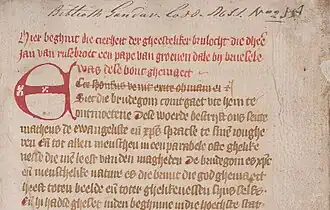 Biblioth. Gandav. Cod. Msst. No
Hier beghint die cierheit der gheesteliker brulocht die dher
Jan van rusebroec een pape van groenen dale bij bruesele
was dese bouc ghemaect
Ecce sponsus venit exite obviam ei
Siet die brudegom comt gaet vte hem te
ontmoetene Dese woerde bescrijft ons sente
matheus de ewangeliste en xpus spracse te sine iongh
ren en tot allen menschen in eenre parabele ofte ghelike
nesse die men leest van den maghden De brudegom es xpus
en menschelike nature es die bruut die god ghemaect
heeft toten beelde en toten ghelikenessen sijns selfs
En hi hadse gheset inden beghinne in die hoechste stat